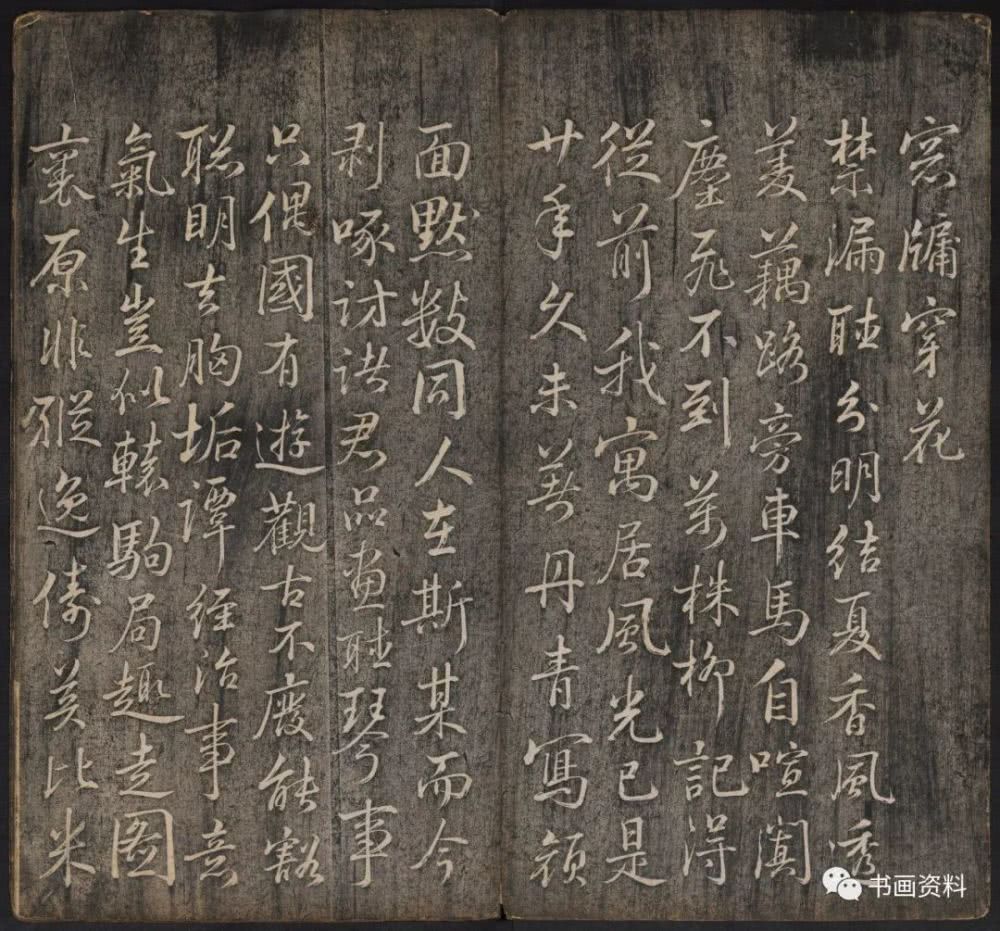 窓牖穿花
禁漏聽分明結夏香風透
菱藕路旁車馬自喧闐
塵飛不到萬株柳記得
從前我寓居風光已是
廿年久未丹青寫
面默數同人在斯某而今
剥啄訪諸君品畫聽琴事
只偶國有遊觀古不廢能豁
聰明去胸垢譚經治事意
氣生豈似轅駒局趣走圖
裏原非縱逸儔奚比米
书画资料